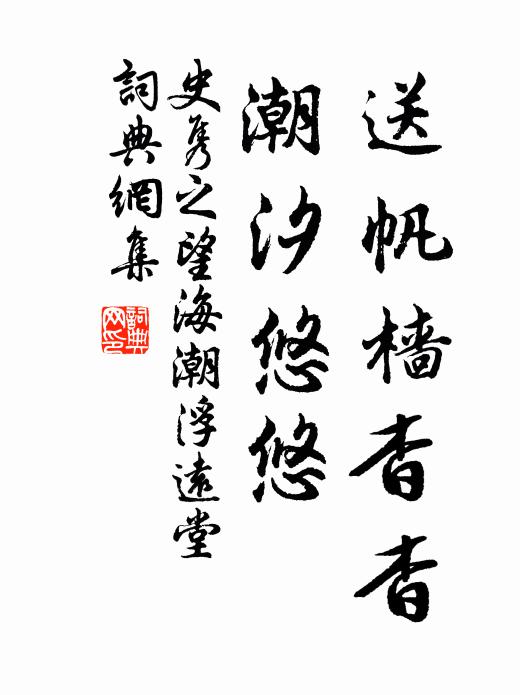 送帆檣杳杳
潮汐悠悠
史隽之望海潮浮遠堂
詞典網集
詞典网印